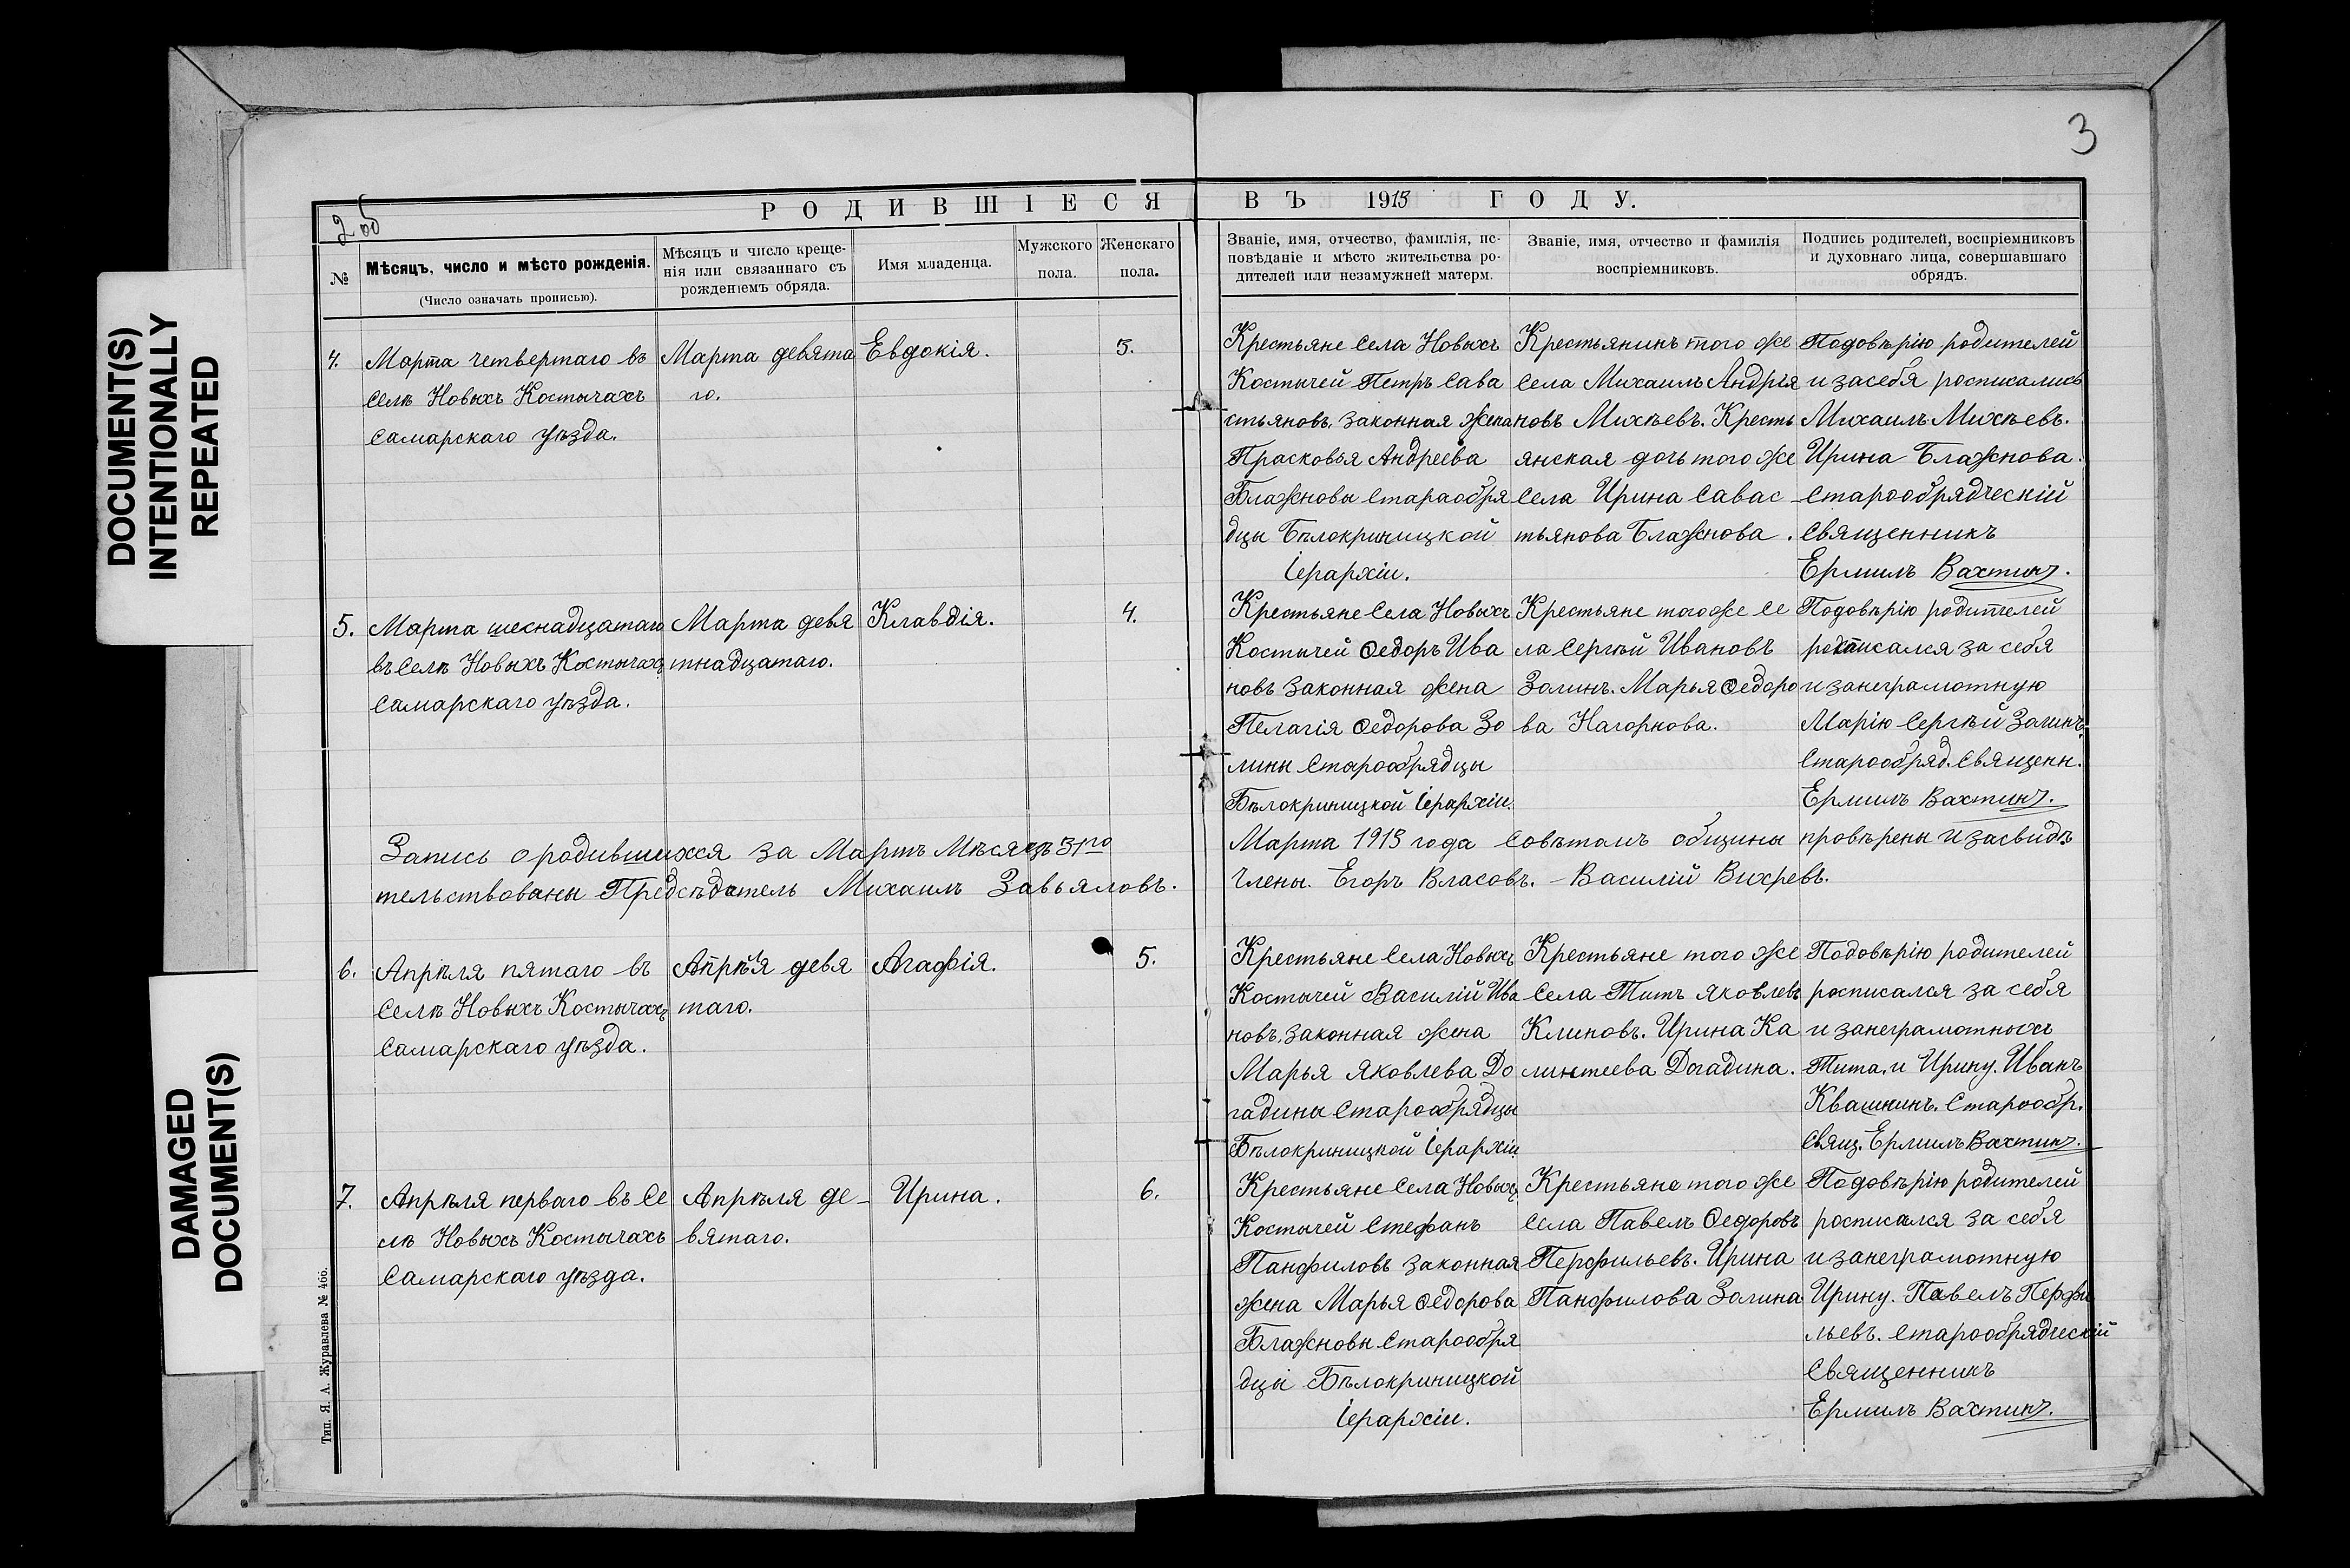 DOCUMENT(S)
INTENTIONALLY
REPEATED
DAMAGED
DOCUMENT(S)
3
2 об
РОДИВШІЕСЯ ВЪ 1915 ГОДУ.
№
Мѣсяцъ, число и мѣсто рожденія.
(Число означать прописью).
Мѣсяцъ и число креще-
нія или связаннаго съ
рожденіемъ обряда.
Имя младенца.
Мужского
пола.
Женскаго
пола.
Званіе, имя, отчество, фамилія, ис-
повѣданіе и мѣсто жительства ро-
дителей или незамужней матери.
Званіе, имя, отчество и фамилія
воспріемниковъ.
Подпись родителей, воспріемниковъ
и духовнаго лица, совершавшаго
обрядъ.
4.
Марта четвертаго въ
Селѣ Новыхъ Костычахъ
Самарскаго уѣзда.
Марта девята
го.
Евдокія.
3.
Крестьяне Села Новыхъ
Костычей Петръ Сава
стьяновъ, законная жена
Прасковья Андреева
Блажновы Стараобря
дцы Бѣлокриницкой
Іерархіи.
Крестьянинъ того же
Села Михаилъ Андрія
новъ Михѣевъ. Кресть
янская дочь того же
Села Ирина Савас-
тьянова Блажнова.
Подовѣрію родителей
и засебя росписались
Михаилъ Михѣевъ.
Ирина Блажнова.
Старообрядческій
Священникъ
Ермилъ Вахтинъ.
5.
Марта шеснадцатаго
въ Селѣ Новыхъ Костычахъ
Самарскаго уѣзда.
Марта девя
тнадцатаго.
Клавдія.
4.
Крестьяне Села Новыхъ
Костычей Ѳедоръ Ива
новъ законная жена
Пелагія Ѳедорова Зо
лины Старообрядцы
Бѣлокриницкой Іерархіи.
Крестьяне того же Се
ла Сергѣй Ивановъ
Золинъ. Марья Ѳедоро
ва Нагорнова.
Подовѣрію родителей
росписался за себя
и занеграмотную
Марію Сергѣй Золинъ.
Старообряд. Священн.
Ермилъ Вахтинъ.
Запись о родившихся за Мартъ Мѣсяцъ 31го Марта 1915 года Совѣтомъ общины провѣрены и засвидѣ
тельствованы Предсѣдатель Михаилъ Завьяловъ. Члены. Егоръ Власовъ. - Василій Вихревъ.
6.
Апрѣля пятаго въ
Селѣ Новыхъ Костычахъ
Самарскаго уѣзда.
Апрѣля девя
таго.
Агафія.
5.
Крестьяне Села Новыхъ
Костычей Василій Ива
новъ, законная жена
Марья Яковлева До
гадины Старообрядцы
Бѣлокриницкой Іерархіи
Крестьяне того же
Села Титъ Яковлевъ
Климовъ. Ирина Ка
линтеева Догадина.
Подовѣрію родителей
росписался за себя
и занеграмотныхъ
Тита, и Ирину. Иванъ
Квашнинъ. Старообр.
Свящ. Ермилъ Вахтинъ.
7.
Апрѣля перваго въ Се
лѣ Новыхъ Костычахъ
Самарскаго уѣзда.
Апрѣля де-
вятаго.
Ирина.
6.
Крестьяне Села Новыхъ
Костычей Стефанъ
Панфиловъ законная
жена Марья Ѳедорова
Блажновы Старообря
дцы Бѣлокриницкой
Іерархіи.
Крестьяне того же
Села Павелъ Ѳедоровъ
Перфильевъ. Ирина
Панфилова Золина
Подовѣрію родителей
росписался за себя
и занеграмотную
Ирину. Павелъ Перфи
льевъ. Старообрядческій
Священникъ
Ермилъ Вахтинъ.
Тип. Я. А. Журавлева № 466.